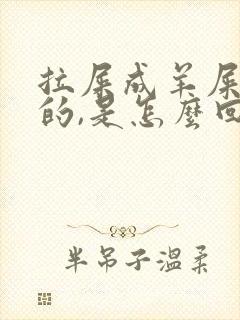 拉屎成羊屎
的,是怎麽回
半吊子温柔